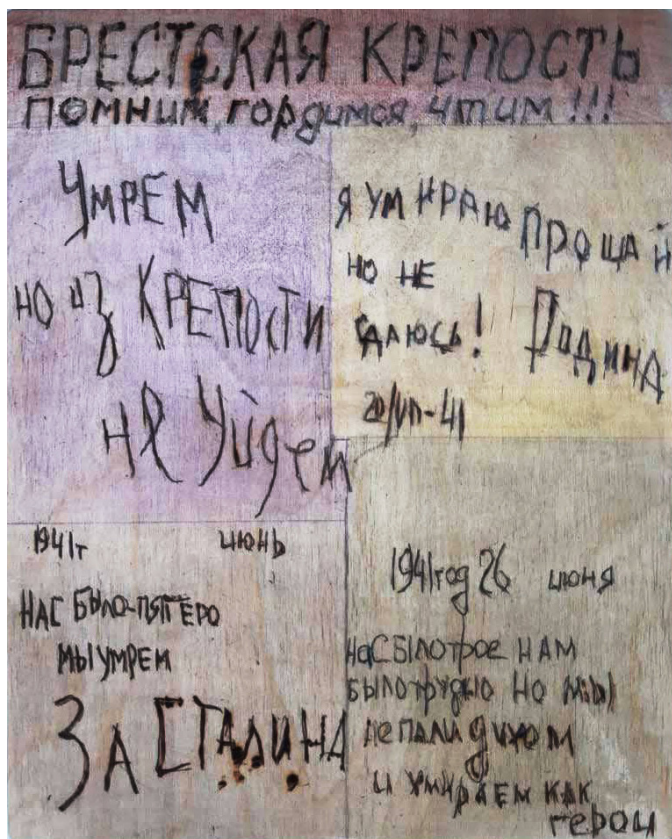 БРЕСТСКАЯ КРЕПОСТЬ
ПОМНИМ, гордимся, чтим!!!
УМРЕМ
НО ИЗ КРЕПОСТИ
не уйдем
Я УМИРАЮ
НО НЕ
СДАЮСЬ!
ПРОЩАЙ
РОДИНА
20/VII-41
1941г июнь
НАС БЫЛО-ПЯТЕРО
МЫ УМРЕМ
ЗА СТАЛИНА
1941год 26 июня
НАС БЫЛО ТРОЕ НАМ
БЫЛО ТРУДНО НО МЫ
не пали духом
и умираем как
герои